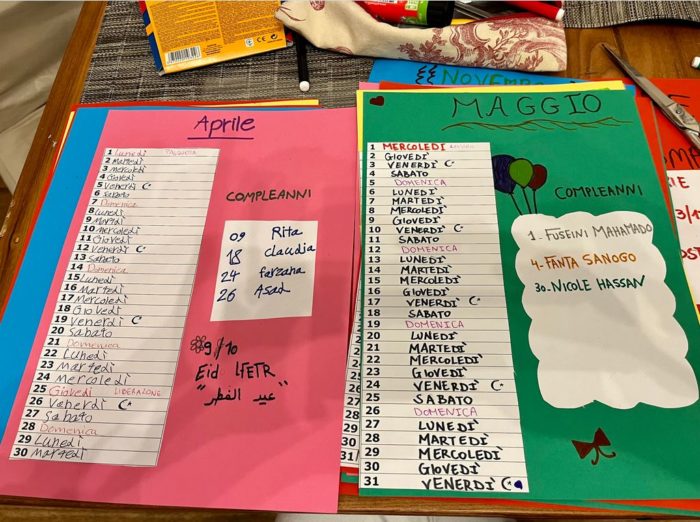 NOVEMB
Aprile
1 Lunedì PASQUETTA
2 Martedì
3 Mercoledì
4 Giovedì
5 Venerdì
6 Sabato
7 Domenica
8 Lunedì
9 Martedì
10 Mercoledì
11 Giovedì
12 Venerdì
13 Sabato
14 Domenica
15 Lunedì
16 Martedì
17 Mercoledì
18 Giovedì
19 Venerdì
20 Sabato
21 Domenica
22 Lunedì
23 Martedì
24 Mercoledì
25 Giovedì LIBERAZIONE
26 Venerdì
27 Sabato
28 Domenica
29 Lunedì
30 Martedì
COMPLEANNI
09 Rita
18 Claudia
24 farzana
26 Asad
9/10
Eid lFETR
"عيد الفطر"
MAGGIO
1 MERCOLEDÌ
2 GIOVEDÌ
3 VENERDÌ
4 SABATO
5 DOMENICA
6 LUNEDÌ
7 MARTEDÌ
8 MERCOLEDÌ
9 GIOVEDÌ
10 VENERDÌ
11 SABATO
12 DOMENICA
13 LUNEDÌ
14 MARTEDÌ
15 MERCOLEDÌ
16 GIOVEDÌ
17 VENERDÌ
18 SABATO
19 DOMENICA
20 LUNEDÌ
21 MARTEDÌ
22 MERCOLEDÌ
23 GIOVEDÌ
24 VENERDÌ
25 SABATO
26 DOMENICA
27 LUNEDÌ
28 MARTEDÌ
29 MERCOLEDÌ
30 GIOVEDÌ
31 VENERDÌ
COMPLEANNI
1- FUSEINI MAHAMADO
4- FANTA SANOGO
30. NICOLE HASSAN